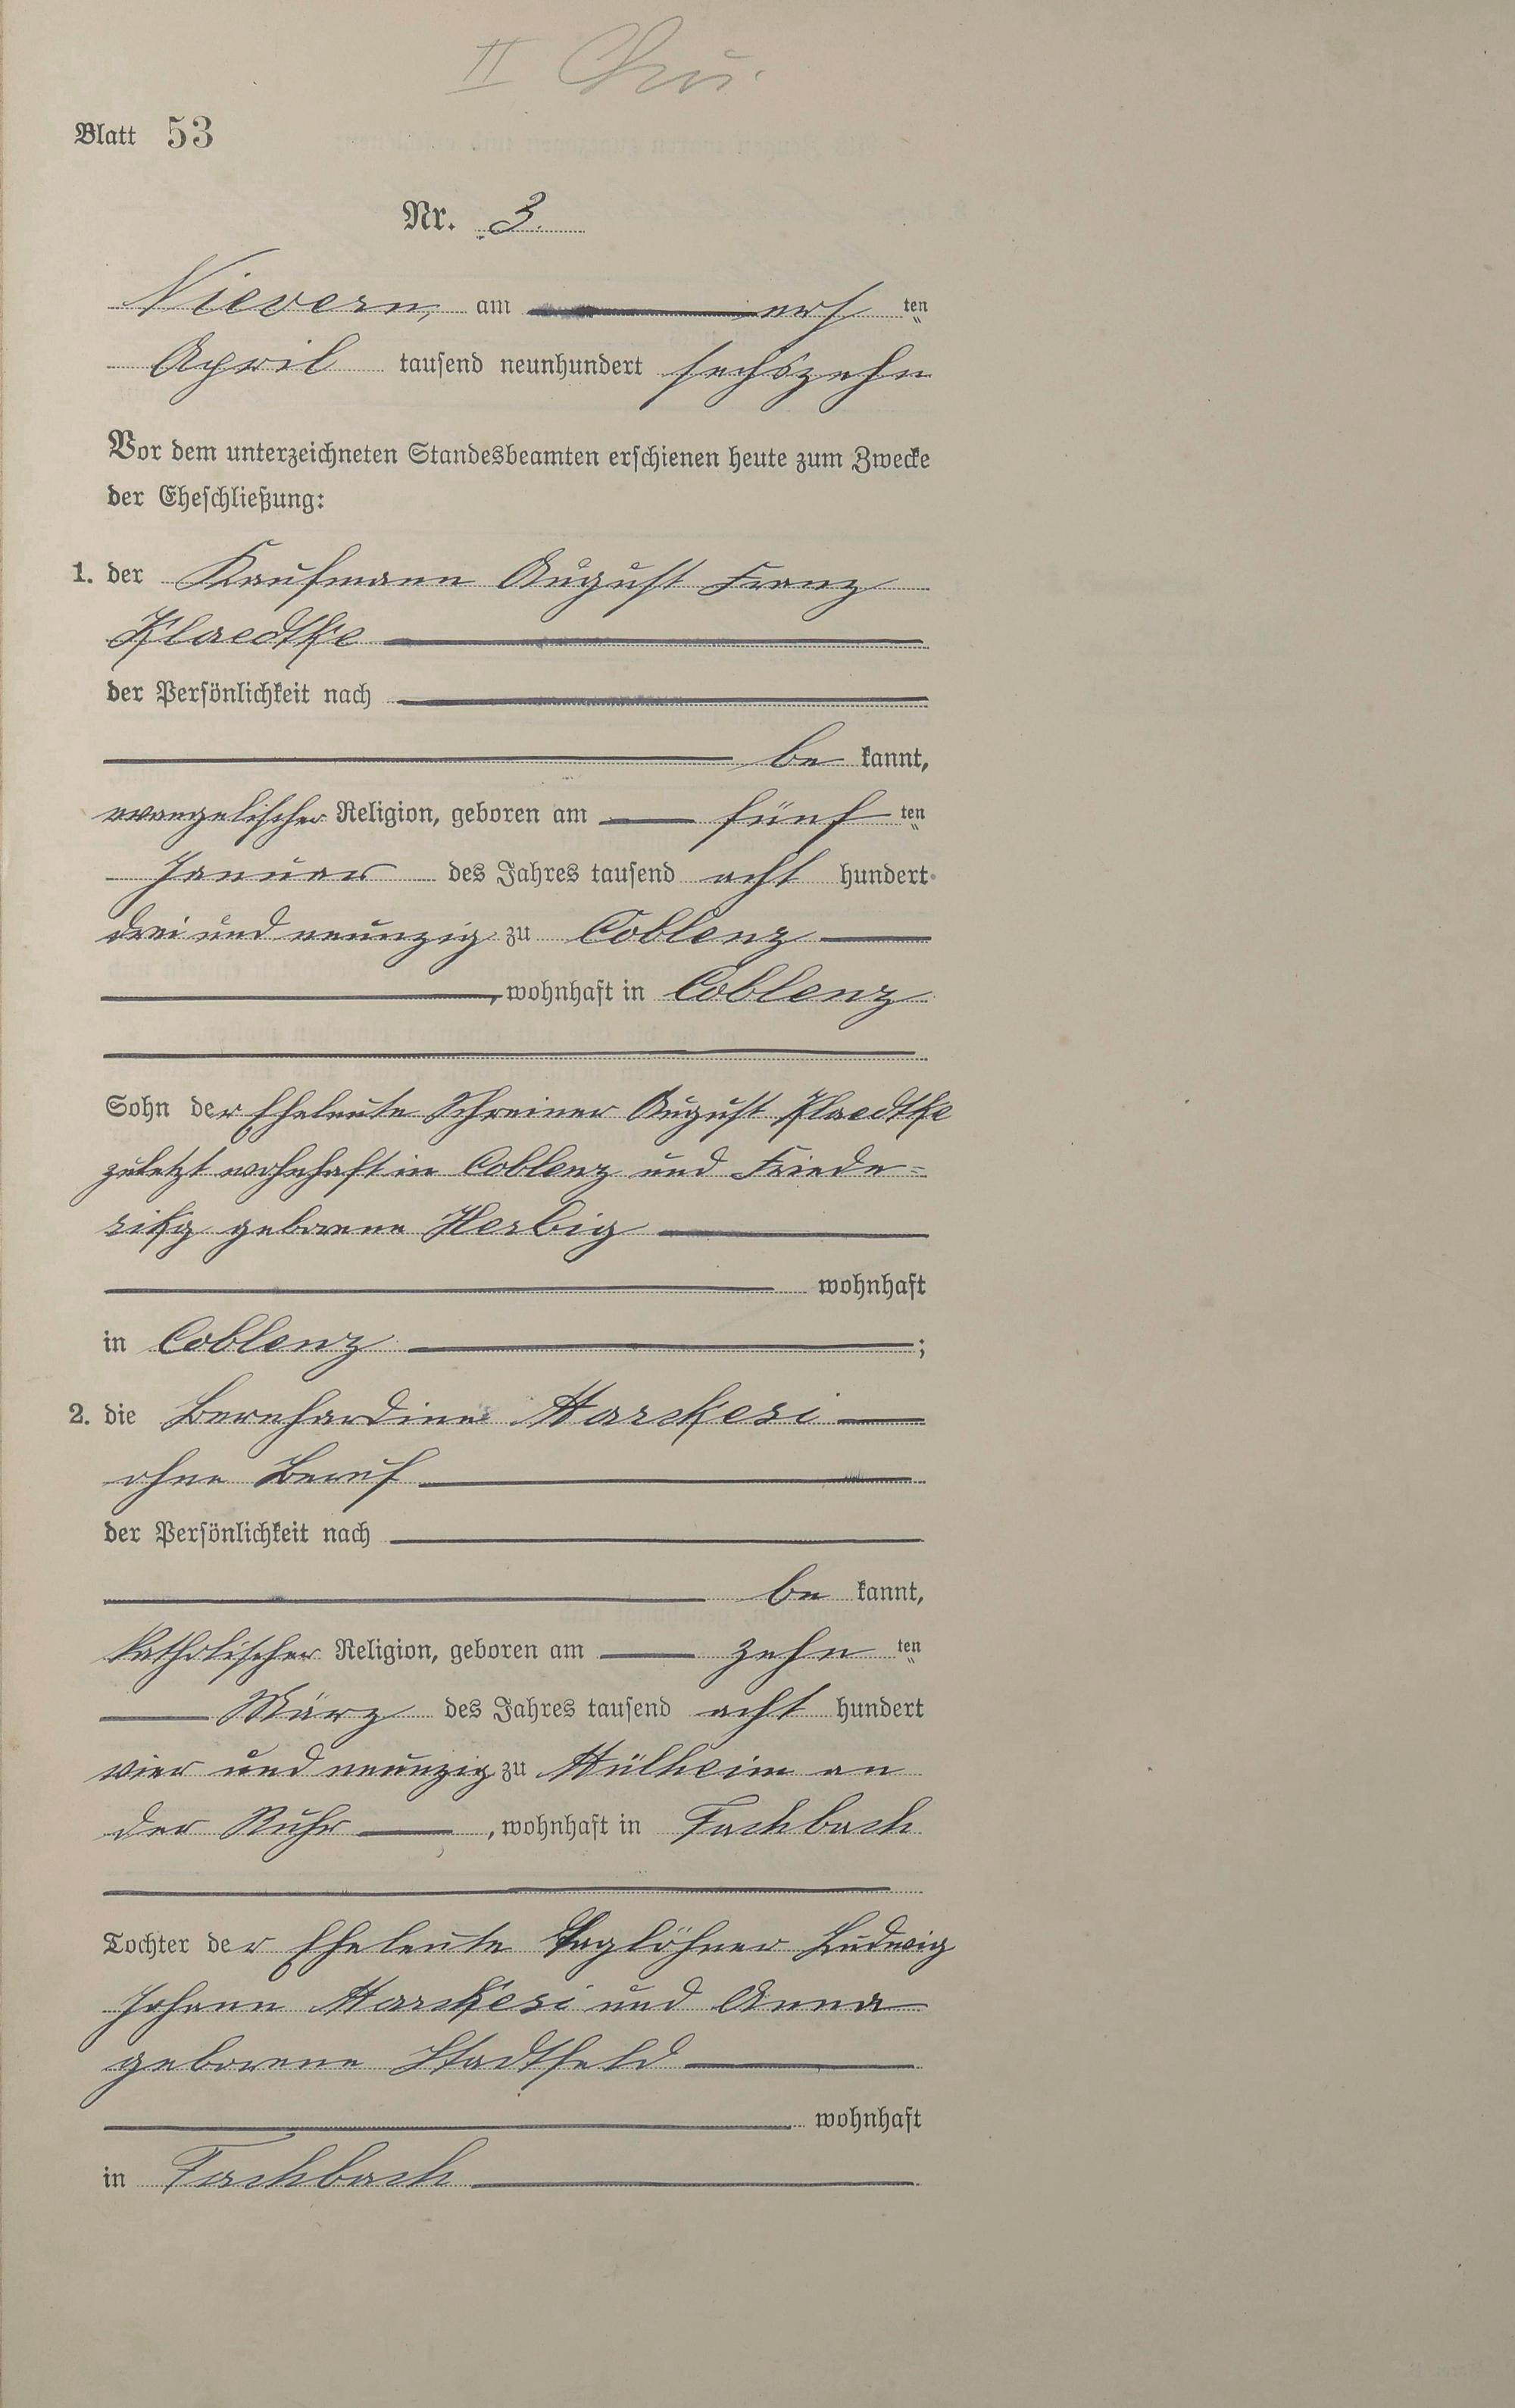 II
Blatt 53
Nr. 3.
Nievern, am ersten
April tausend neunhundert sechszehn
Vor dem unterzeichneten Standesbeamten erschienen heute zum Zwecke
der Eheschließung:
1. der Kaufmann August Franz
Klaedtke
der Persönlichkeit nach
be kannt,
evangelischer Religion, geboren am fünf ten
Januar des Jahres tausend acht hundert
drei und neunzig zu Coblenz
, wohnhaft in Coblenz
Sohn der Eheleute Schreiner August Klaedtke
zuletzt wohnhaft in Coblenz und Friede=
geborene Herbig
wohnhaft
in Coblenz ;
2. die Bernhardine Harckesi
ohne Beruf
der Persönlichkeit nach
be kannt,
katholischer Religion, geboren am zehn ten
März des Jahres tausend acht hundert
vier und neunzig zu Mülheim an
der Ruhr , wohnhaft in Fachbach
Tochter der Eheleute Taglöhner Ludwig
Johann Harckesi und Anna
geborene Stadtfeld
wohnhaft
in Fachbach